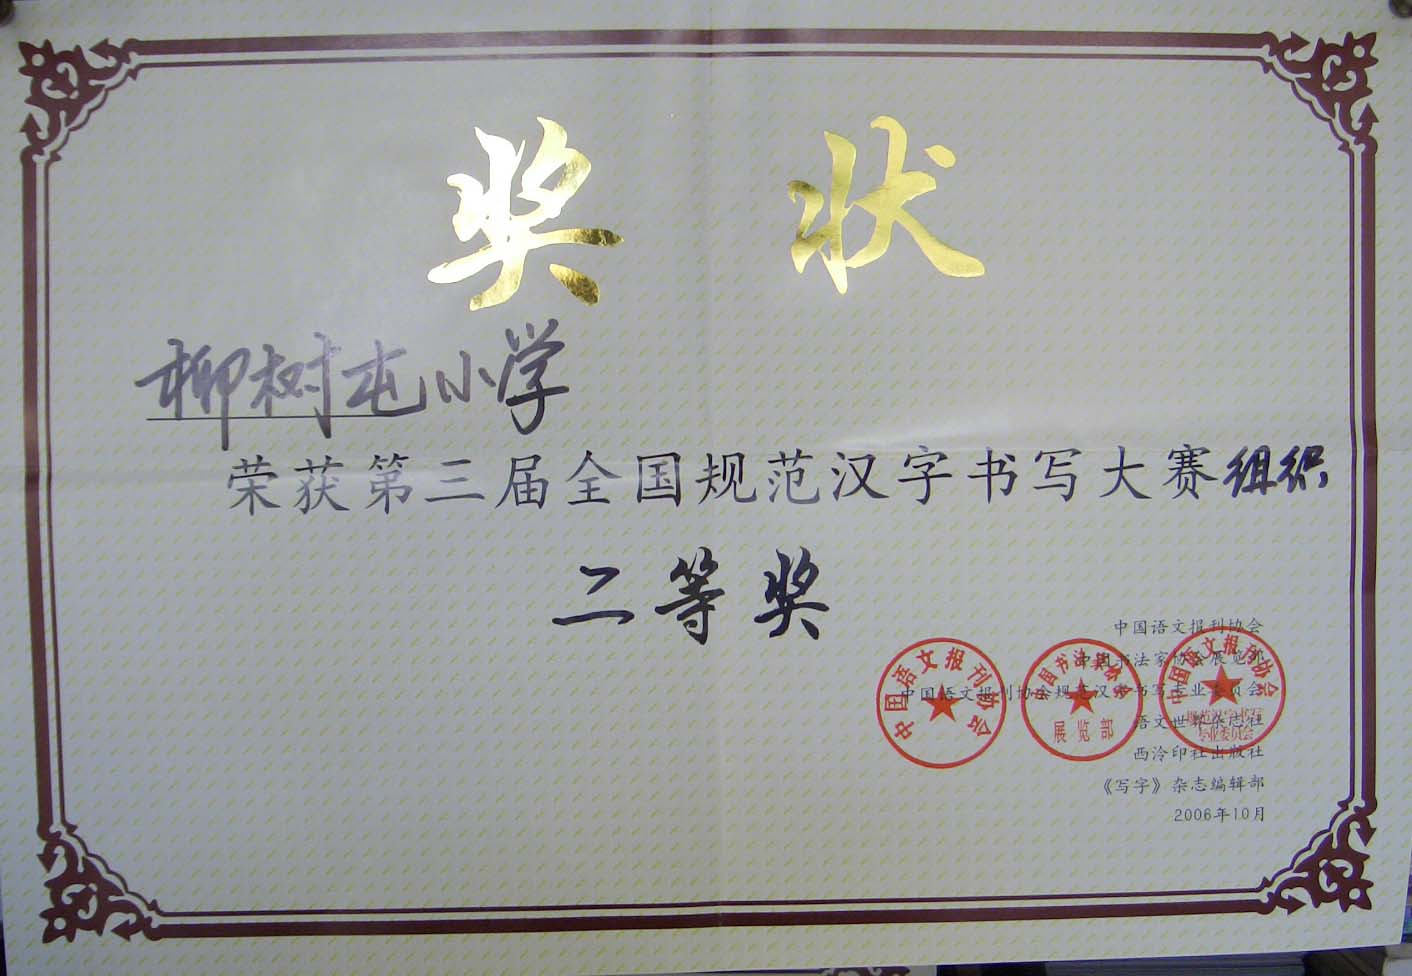 奖状
柳树屯小学
荣获第三届全国规范汉字书写大赛组织
二等奖
中国语文报刊协会
中国书法家协会展览部
中国语文报刊协会规范汉字书写专业委员会
语文世界杂志社
西泠印社出版社
《写字》杂志编辑部
2006年10月
中国语文报刊协会
中国书法家协会
展览部
中国语文报刊协会
规范汉字书写
专业委员会